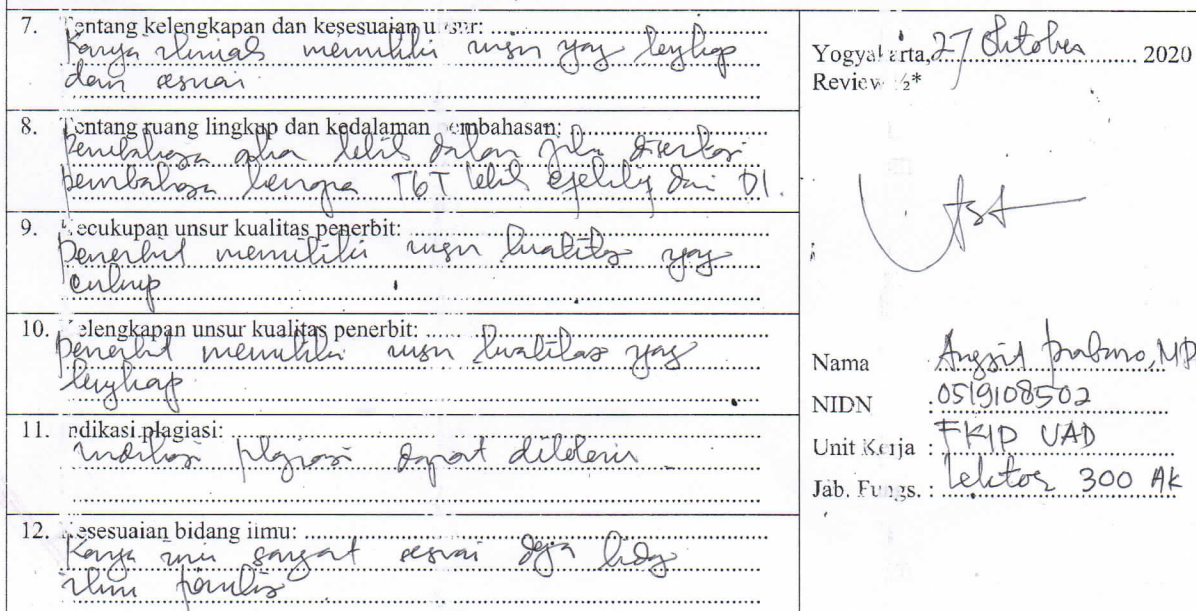 7. Tentang kelengkapan dan kesesuaian unsur:
Karya ilmiah memiliki unsur yang lengkap
dan sesuai
8. Tentang ruang lingkup dan kedalaman pembahasan:
Pembahasan akan lebih dalam jika disertai
pembahasan kenapa TGT lebih dari DI.
9. Kecukupan unsur kualitas penerbit:
Penerbit memiliki unsur kualitas yang
cukup
10. Kelengkapan unsur kualitas penerbit:
Penerbit memiliki unsur kualitas yang
lengkap
11. Indikasi plagiasi:
Indikasi plagiasi dapat
12. Kesesuaian bidang ilmu:
Karya ini sangat sesuai dengan bidang
ilmu penulis
Yogyakarta, 27 Oktober 2020
Reviewer ½*
Nama
NIDN : 0519108502
Unit Kerja : FKIP UAD
Jab. Fungs. : Lektor 300 AK